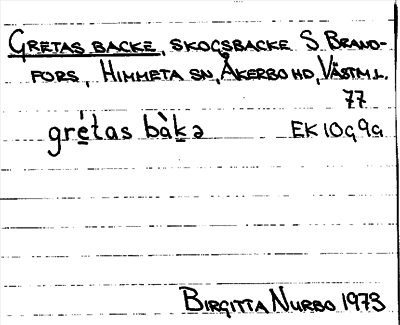 GRETAS BACKE, SKOGSBACKE S BRAND-
FORS, HIMMETA SN, ÅKERBO HD, VÄSTML.
77
grétas bàkə EK 10g 9g
BIRGITTA NURBO 1973